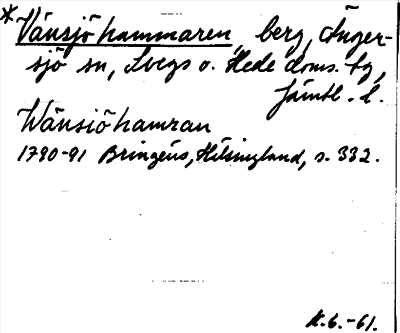 *Vänsjöhammaren, berg, Ånger-
sjö sn, Svegs o. Hede doms. tg,
Jämtl. l.
Wänsiöhamran
1790-91 Bringéus, Hilsingland, s. 332.
K.6.-61.